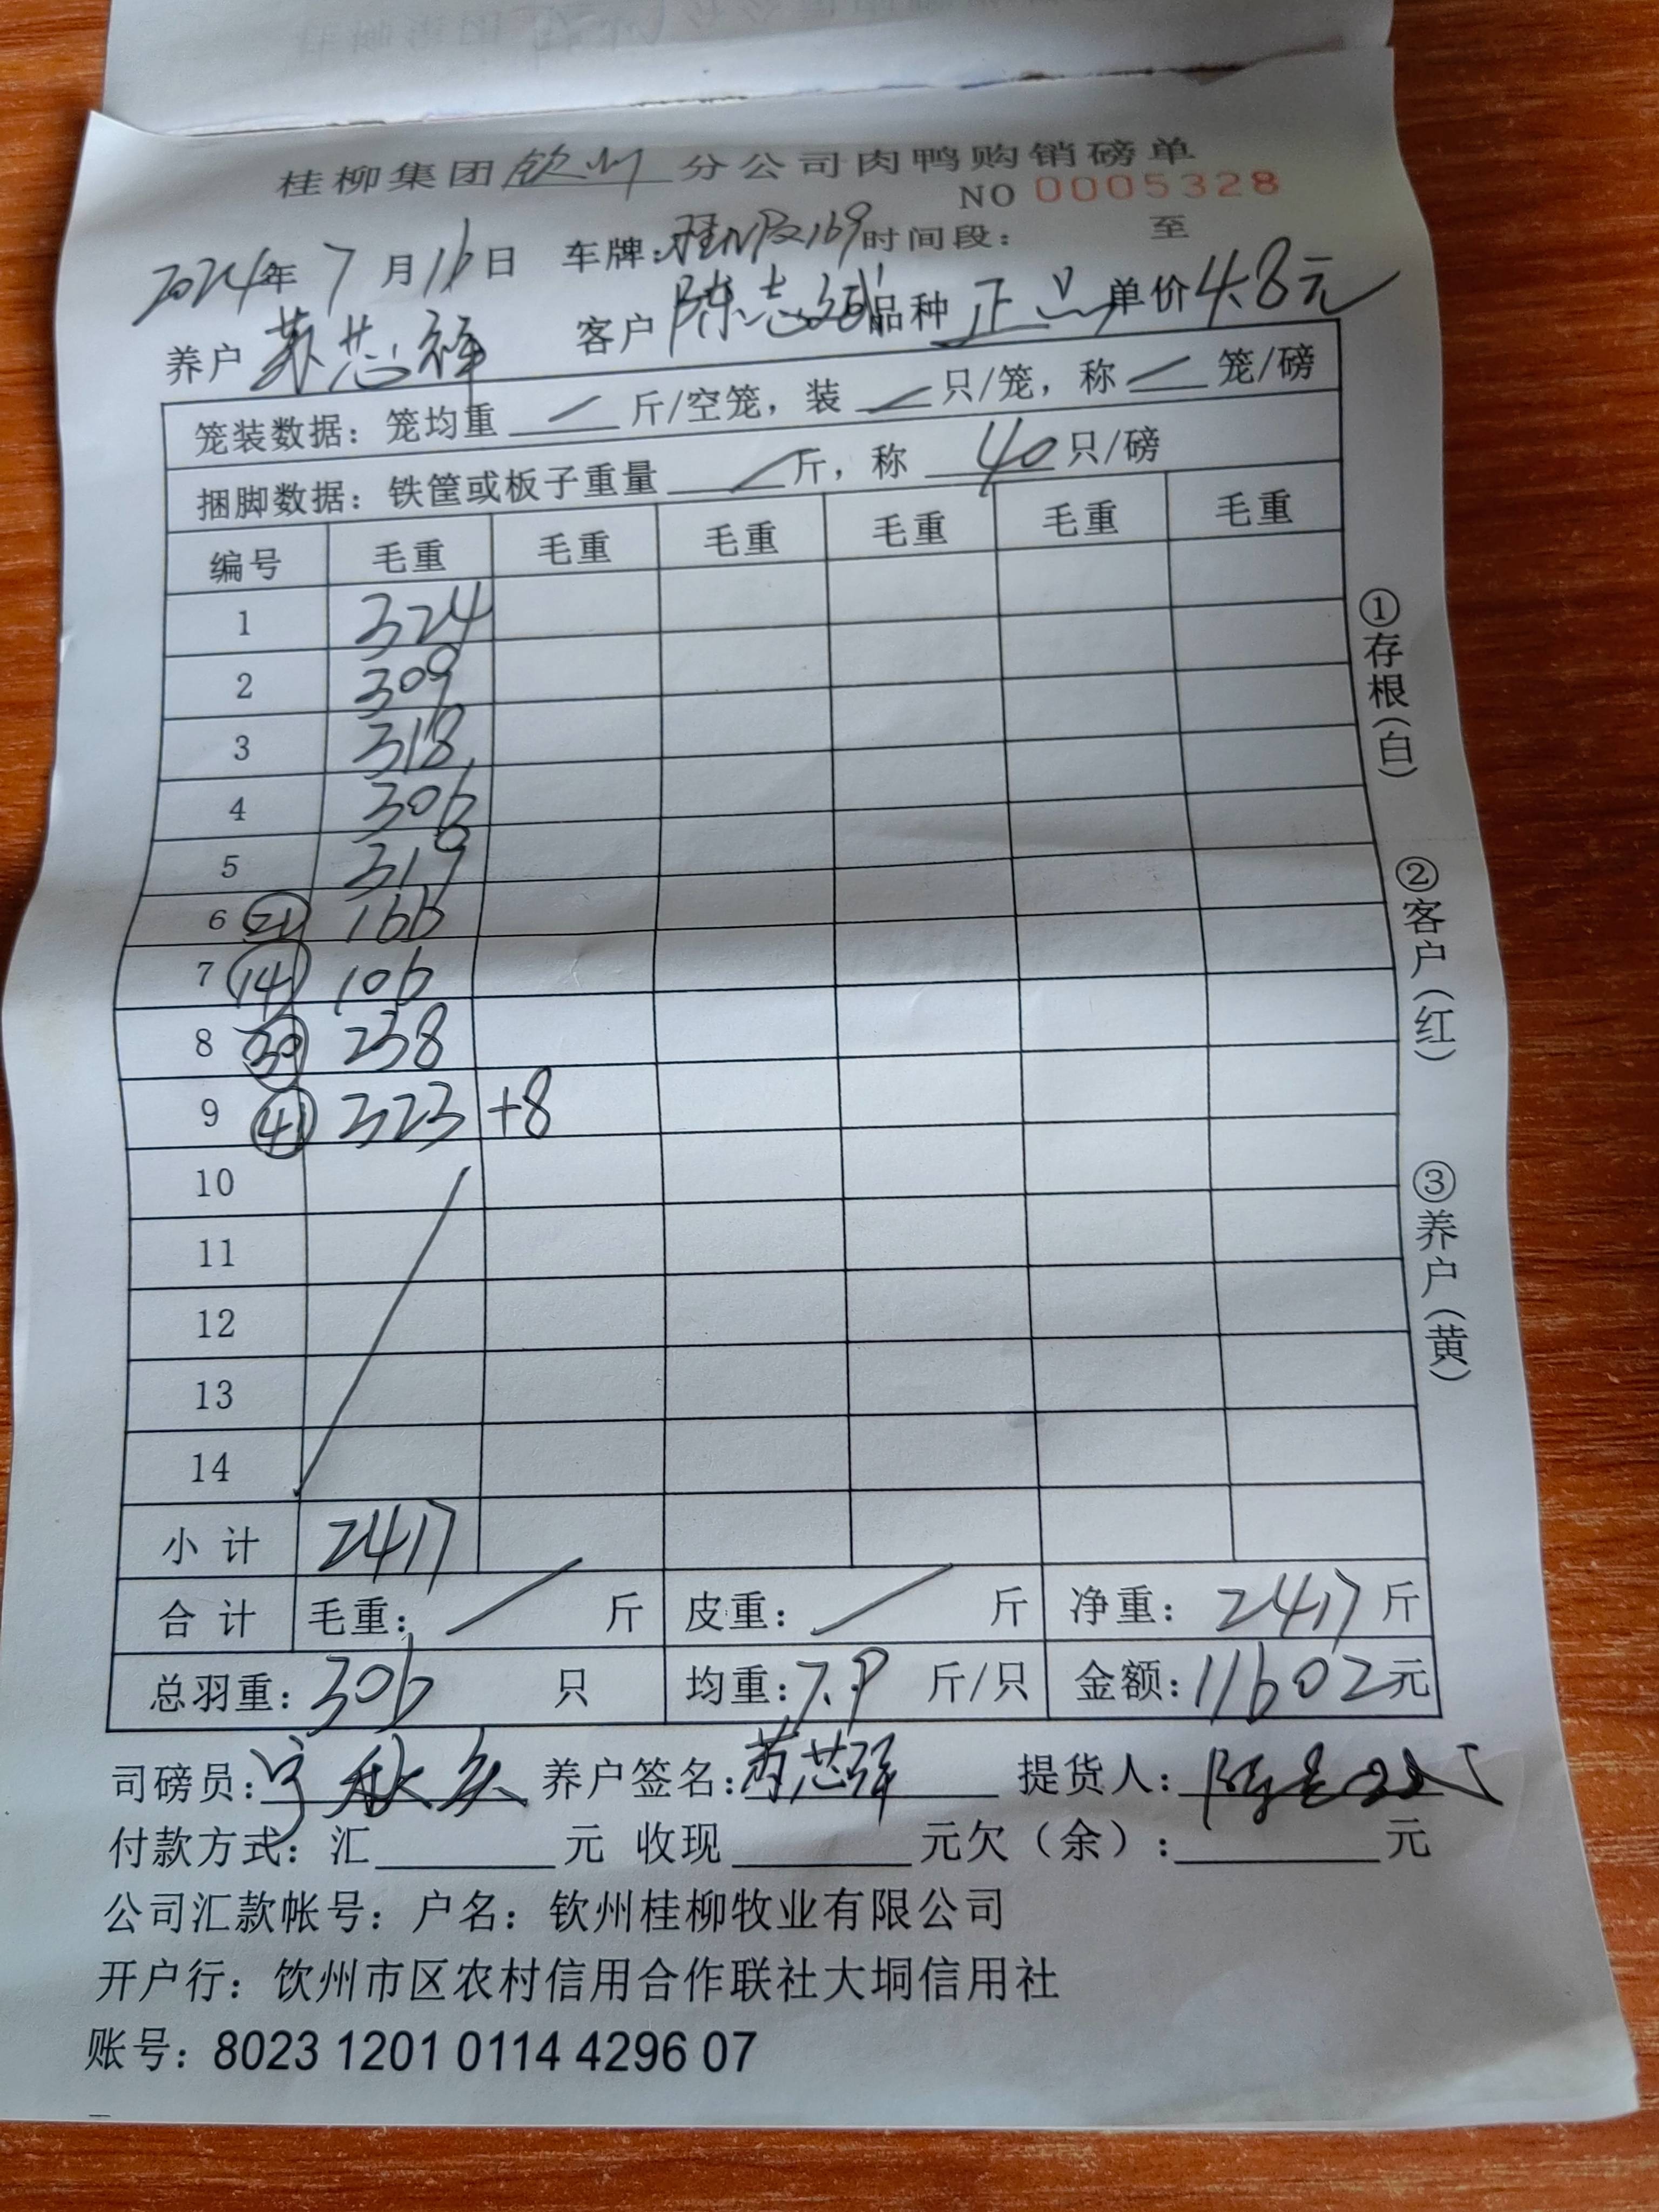 桂柳集团钦州分公司肉鸭购销磅单
NO 0005328
2024年7月16日 车牌: 时间段: 至
养户 苏芯祥 客户 陈志斌 品种 正品 单价4.8元
笼装数据: 笼均重 / 斤/空笼, 装 / 只/笼, 称 / 笼/磅
捆脚数据: 铁筐或板子重量 / 斤, 称 40 只/磅
编号 毛重 毛重 毛重 毛重 毛重 毛重
1 324
2 309
3 318
4 306
5 319
6 21 166
7 14 106
8 30 238
9 41 323 +8
10
11
12
13
14
小计 2417
合计 毛重: / 斤 皮重: / 斤 净重: 2417 斤
总羽重: 306 只 均重: 7.9 斤/只 金额: 11602元
司磅员: 养户签名: 苏芯祥 提货人:
付款方式: 汇 元 收现 元欠(余): 元
公司汇款帐号: 户名: 钦州桂柳牧业有限公司
开户行: 饮州市区农村信用合作联社大垌信用社
账号: 8023 1201 0114 4296 07
①存根(白)
②客户(红)
③养户(黄)